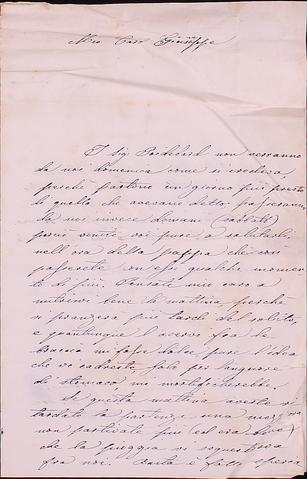 Mio Caro Giuseppe
I Sigi non verranno
da noi domenica come si credeva,
perché partono un giorno più presto
di quello che avevano detto; passeranno
da noi invece domani (sabbato)
perciò venite voi pure a salutarli
nell'ora della pappa che così
passerete con essi qualche momen
to di più. Pensate mio caro a
nutrirvi bene la mattina perché
si pranzerà più tardi del solito,
e quantunque l'avervi fra le
braccia mi fosse dolce, pure l'idea
che voi cadreste, solo per languore
di stomaco mi mortificherebbe.
Se questa mattina aveste ri
tardato la partenza una mezz'ora
non partivate più (ed era bene)
che la pioggia vi sequestrava
fra noi. Basta è fatta